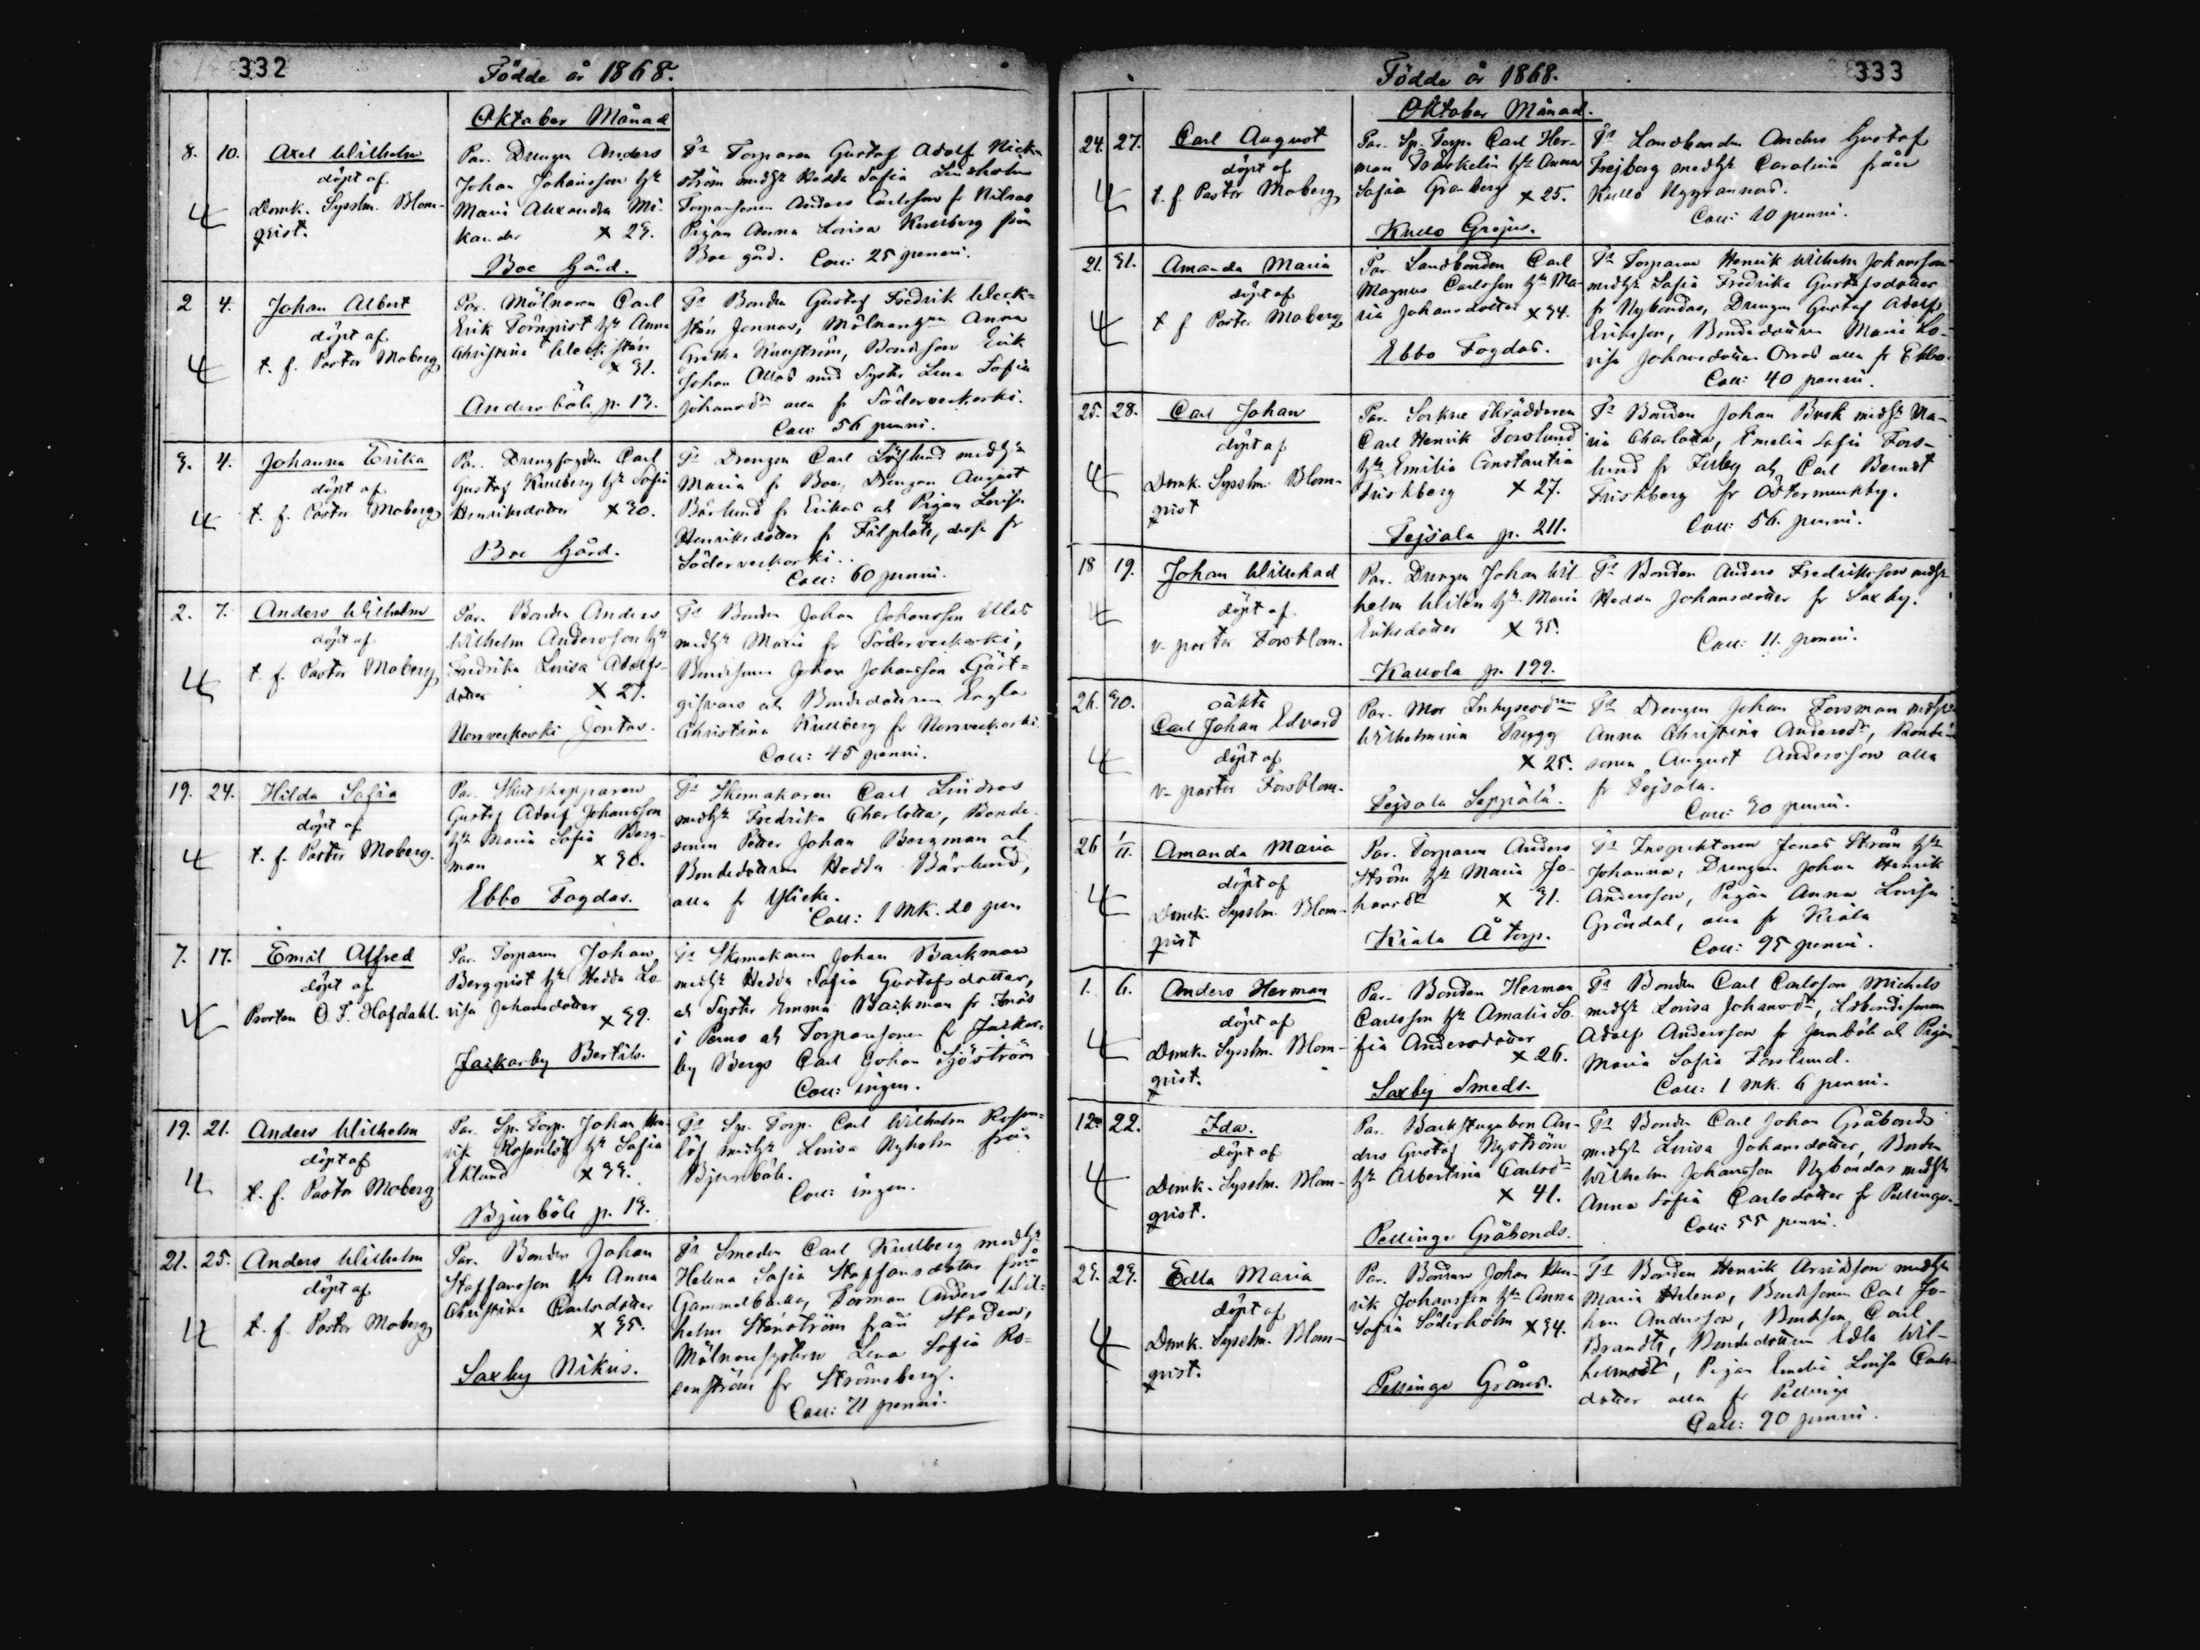 332
Födde år 1868.
Oktober Månad
8. 10. Axel Wilhelm
döpt af
Domk. Sysslm. Blom-
qvist.
Par. Drengen Anders
Johan Johansson hu
Maria Alexandra Mi-
kander x 29.
Boe Gård.
Torparen Gustaf Adolf Nick-
ström med hu Hedda Sofia Lindholm
Torparsonen Anders Carlsson fr Nilsas
Pigan Anna Lovisa Kullberg från
Boe gård. Coll: 25 penni.
2 4. Johan Albert
döpt af
t. f. Pastor Moberg
Par. Mölnaren Carl
Erik Törnqvist hu Anna
Christina Weckstén
x 31.
Andersböle p. 13.
Bonden Gustaf Fredrik Weck-
stén Jonnas, Mölnare Anna
Greta Nyström, Bondeson Erik
Johan Allas med Syster Lena Sofia
Johansdr alla fr Söderveckoski.
Coll: 56 penni.
3. 4. Johanna Erika
döpt af
t. f. Pastor Moberg
Par. Drengfogden Carl
Gustaf Kullberg hu Sofia
Henriksdotter x 30.
Boe Gård.
Drengen Carl Löflund med hu
Maria fr Boe, Drengen August
Bärlund fr Erikas och Pigan Lovisa
Henriksdotter fr Filplats, dess fr
Söderveckoski.
Coll: 60 penni.
2. 7. Anders Wilhelm
döpt af
t. f. Pastor Moberg
Par. Bonden Anders
Wilhelm Andersson hu
Fredrika Lovisa Adolfs-
dotter x 27.
Norrveckoski Jontas.
Bonden Johan Johansson Ullas
med hu Maria fr Söderveckoski,
Bondesonen Johan Johansson Gäst-
gifvars och Bondedottren Hagla
Christina Kullberg fr Norrveckoski
Coll: 45 penni.
19. 24. Hilda Sofia
döpt af
t. f. Pastor Moberg.
Par. Skutskepparen
Gustaf Adolf Johansson
hu Maria Sofia Berg-
man x 30.
Ebbo Fogdas.
Skomakaren Carl Lindros
med hu Fredrika Charlotta, Bonde-
sonen Petter Johan Bergman och
Bondedottren Hedda Bärlund,
alla fr Ylicke.
Coll: 1 Mk. 20 pen
7. 17. Emil Alfred
döpt af
Prosten O. I. Hofdahl.
Par. Torparen Johan
Bergqvist hu Hedda Lo-
visa Johansdotter
x 39.
Jackarby Bertils.
Skomakaren Johan Backman
med hu Hedda Sofia Gustafsdotter,
och Syster Emma Backman fr Isnäs
i Perno och Torparsonen fr Jackar-
by Bergs Carl Johan Sjöström
Coll: ingen.
19. 21. Anders Wilhelm
döpt af
t. f. Pastor Moberg
Par. Sp. Torp. Johan Hen-
rik Rosenlöf hu Sofia
Eklund x 33.
Bjurböle p. 13.
Sp. Torp. Carl Wilhelm Rosen-
löf med hu Lovisa Nyholm från
Bjurböle.
Coll: ingen.
21. 25. Anders Wilhelm
döpt af
t. f. Pastor Moberg
Par. Bonden Johan
Staffansson hu Anna
Christina Carlsdotter
x 35.
Saxby Nikus.
Smeden Carl Kullberg med hu
Helena Sofia Staffansdotter från
Gammelbacka, Forman Anders Wil-
helm Stenström från Staden,
Lena Sofia Ro-
senström fr Strömsberg.
Coll: 71 penni.
333
Födde år 1868.
Oktober Månad.
24. 27. Carl August
döpt af
t. f. Pastor Moberg
Par. Sp. Torp. Carl Her-
man hu Anna
Sofia Granberg x 25.
Kullo Grejus.
Landbonden Anders Gustaf
Frejborg med hu Carolina från
Kullo Nygrannas.
Coll: 10 penni.
21. 31. Amanda Maria
döpt af
t f Pastor Moberg
Par. Landbonden Carl
Magnus Carlsson hu Ma-
ria Johansdotter x 34.
Ebbo Fogdas.
Torparen Henrik Wilhelm Johansson
med hu Sofia Fredrika Gustafsdotter
fr Nybondas, Drengen Gustaf Adolf
Eriksson, Bondedottren Maria Lo-
visa Johansdotter Orras alla fr Ebbo.
Coll: 40 penni.
25. 28. Carl Johan
döpt af
Domk. Sysslm. Blom-
qvist
Par. Sockne Skräddaren
Carl Henrik Forslund
hu Emilia Constantia
Friskberg x 27.
Tejsala p. 211.
Bonden Johan Brok med hu Ma-
ria Charlotta, Emelia Sofia Fors-
lund fr Illby och Carl Berndt
Friskberg fr Östermunkby.
Coll: 56 penni.
18 19. Johan Willehad
döpt af
v. pastor Forsblom.
Par. Drengen Johan Wil-
helm Wilén hu Maria
Eriksdotter x 35.
Kallola p. 199.
Bonden Anders Fredriksson med hu
Hedda Johansdotter fr Saxby.
Coll: 11. penni.
26. 30. oäkta
Carl Johan Edvard
döpt af
v. pastor Forsblom.
Par. Mor Inhysesdren
Wilhelmina Trygg
x 25.
Tejsala Seppälä.
Drengen Johan Forsman med hu
Anna Christina Andersdr, Bonde-
sonen August Andersson alla
fr Tejsala.
Coll: 30 penni.
26 1/11. Amanda Maria
döpt af
Domk. Sysslm. Blom-
qvist
Par. Torparen Anders
Ström hu Maria Jo-
hansdr x 31.
Kiala Å torp.
Inspektoren Jonas Ström hu
Johanna, Drengen Johan Henrik
Andersson, Pigan Anna Lovisa
Gröndal, alla fr Kiala
Coll: 95 penni.
1. 6. Anders Herman
döpt af
Domk. Sysslm. Blom-
qvist.
Par. Bonden Herman
Carlsson hu Amalia So-
fia Andersdotter
x 26.
Saxby Smeds.
Bonden Carl Carlsson Michels
med hu Lovisa Johansdr, Ldbondesonen
Adolf Andersson fr Jernböle och Pigan
Maria Sofia Forslund.
Coll: 1 mk. 6 penni.
12 22. Ida.
döpt af
Domk. Sysslm. Blom-
qvist.
Par. Backstugubon An-
ders Gustaf Nyström
hu Albertina Carlsdr
x 41.
Pellinge Gråbonds.
Bonden Carl Johan Gråbonds
med hu Lovisa Johansdotter, Bonden
Wilhelm Johansson Nybondas med hu
Anna Sofia Carlsdotter fr Pellinge.
Coll: 55 penni.
23. 29. Edla Maria
döpt af
Domk. Sysslm. Blom-
qvist.
Par. Bonden Johan Hen-
rik Johansson hu Anna
Sofia Söderholm x 34.
Pellinge Gråns.
Bonden Henrik Arvidson med hu
Maria Helena, Bondesonen Carl Jo-
han Andersson, Bondeson Carl
Brandt, Bondedottren Edla Wil-
helmsdr, Pigan Emelie Lovisa Carls-
dotter alla fr Pellinge
Coll: 90 penni.